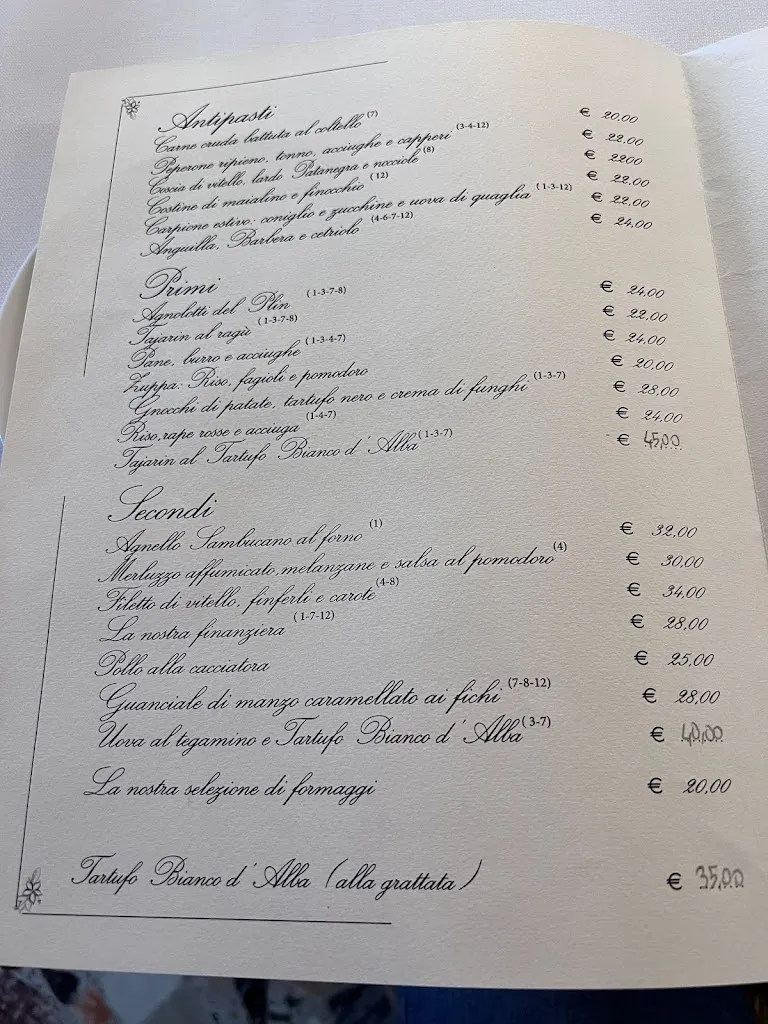 Antipasti
Carne cruda battuta al coltello (7) € 20,00
Peperone ripieno: tonno, acciughe e capperi (3-4-12) € 22,00
Coscia di vitello, lardo Patanegra e nocciole (8) € 2200
Costine di maialino e finocchio (12) € 22,00
Carpione estivo: coniglio e zucchine e uova di quaglia (1-3-12) € 22,00
Anguilla, Barbera e cetriolo (4-6-7-12) € 24,00
Primi
Agnolotti del Plin (1-3-7-8) € 24,00
Tajarin al ragù (1-3-7-8) € 22,00
Pane, burro e acciughe (1-3-4-7) € 24,00
Zuppa: Riso, fagioli e pomodoro € 20,00
Gnocchi di patate, tartufo nero e crema di funghi (1-3-7) € 28,00
Riso, rape rosse e acciuga (1-4-7) € 24,00
Tajarin al Tartufo Bianco d'Alba (1-3-7) € 45,00
Secondi
Agnello Sambucano al forno (1) € 32,00
Merluzzo affumicato, melanzane e salsa al pomodoro (4) € 30,00
Filetto di vitello, finferli e carote (4-8) € 34,00
La nostra finanziera (1-7-12) € 28,00
Pollo alla cacciatora € 25,00
Guanciale di manzo caramellato ai fichi (7-8-12) € 28,00
Uova al tegamino e Tartufo Bianco d'Alba (3-7) € 40,00
La nostra selezione di formaggi € 20,00
Tartufo Bianco d'Alba (alla grattata) € 35,00